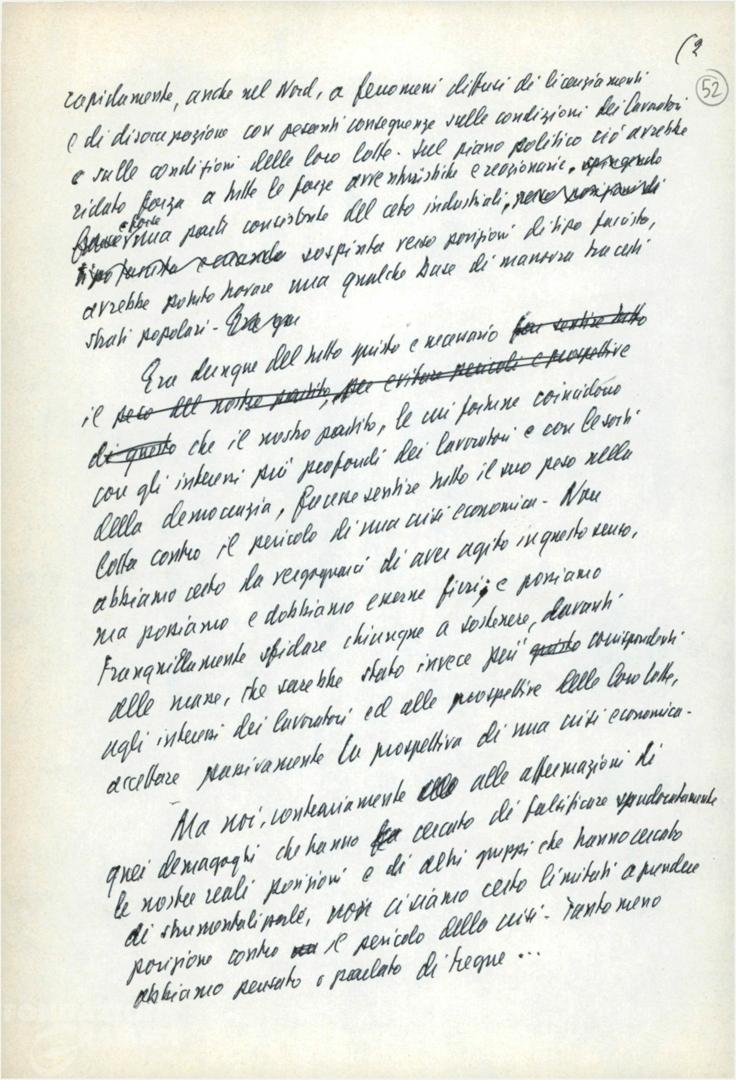 (2
52
rapidamente, anche nel Nord, a fenomeni diffusi di licenziamenti
e di disoccupazione con pesanti conseguenze sulle condizioni dei lavoratori
e sulle condizioni delle loro lotte. Sul piano politico ciò avrebbe
ridato forza a tutte le forze avventuristiche e reazionarie, spingendo
e forse una parte consistente del ceto industriali,
sospinta verso posizioni di tipo fascista,
avrebbe potuto trovare una qualche base di manovra tra certi
strati popolari -
Era dunque del tutto giusto e necessario far sentire tutto
il peso del nostro partito, per evitare pericoli e prospettive
di questo che il nostro partito, le cui fortune coincidono
con gli interessi più profondi dei lavoratori e con le sorti
della democrazia, facesse sentire tutto il suo peso nella
lotta contro il pericolo di una crisi economica - Non
abbiamo certo da vergognarci di aver agito in questo senso,
ma possiamo e dobbiamo esserne fieri; e possiamo
tranquillamente sfidare chiunque a sostenere, davanti
alle masse, che sarebbe stato invece più giusto corrispondente
agli interessi dei lavoratori ed alle prospettive delle loro lotte,
accettare passivamente la prospettiva di una crisi economica -
Ma noi, contrariamente alle affermazioni di
quei demagoghi che hanno cercato di falsificare spudoratamente
le nostre reali posizioni e di altri gruppi che hanno cercato
di strumentalizzarle, non ci siamo certo limitati a prendere
posizione contro il pericolo della crisi - Tanto meno
abbiamo pensato o parlato di tregue ...